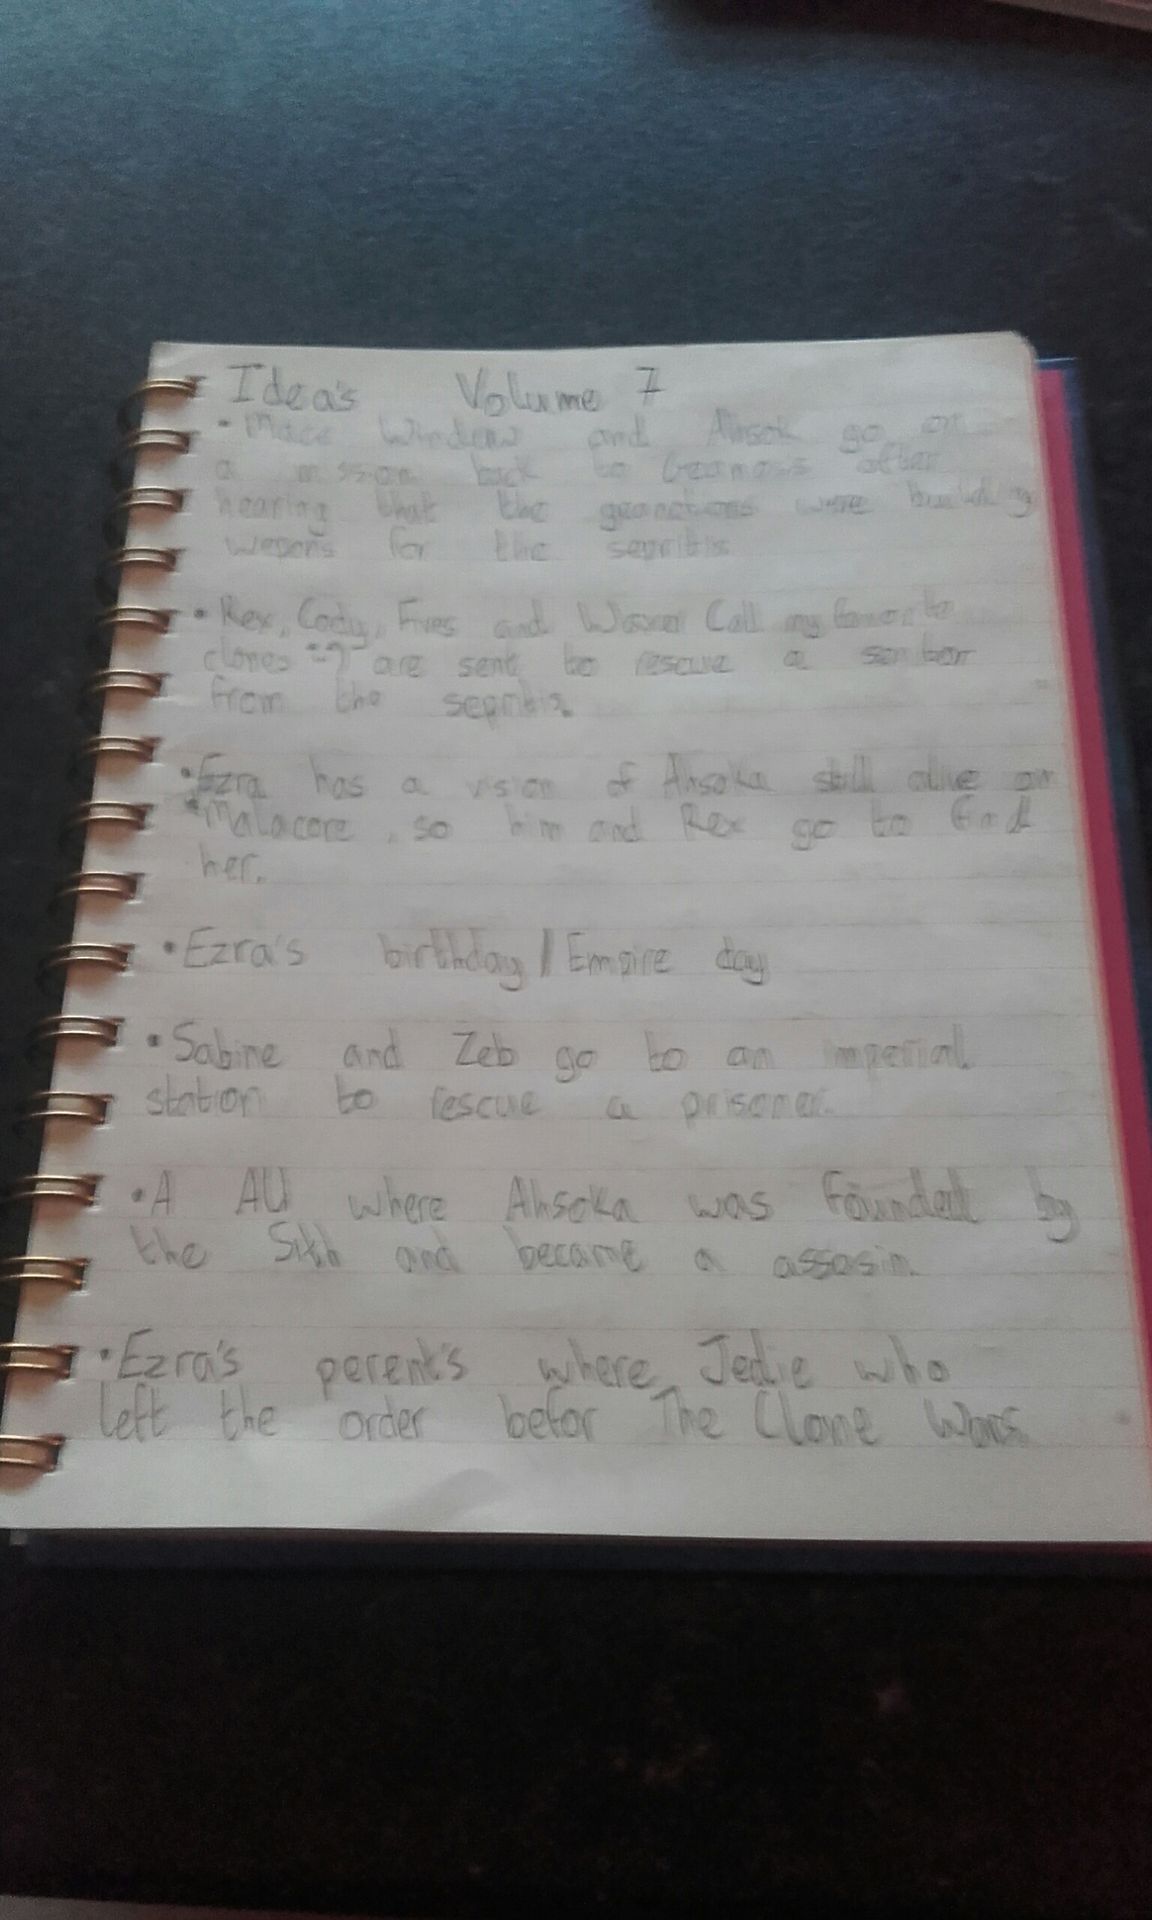 Idea's Volume 7
• Mace Window and Ahsok go on
a mission back to Geonosis after
hearing that the geanotions were building
wepons for the sepritis
• Rex, Cody, Fives and Waxer (all my favorite
clones are sent to rescue a senitor
from the sepritis.
• Ezra has a vision of Ahsoka still alive on
Malacore, so him and Rex go to find
her.
• Ezra's birthday / Empire day
• Sabine and Zeb go to an imperial
station to rescue a prisoner.
• A AU where Ahsoka was founded by
the Sith and became a assasin.
• Ezra's perent's where Jedie who
left the order befor The Clone Wars